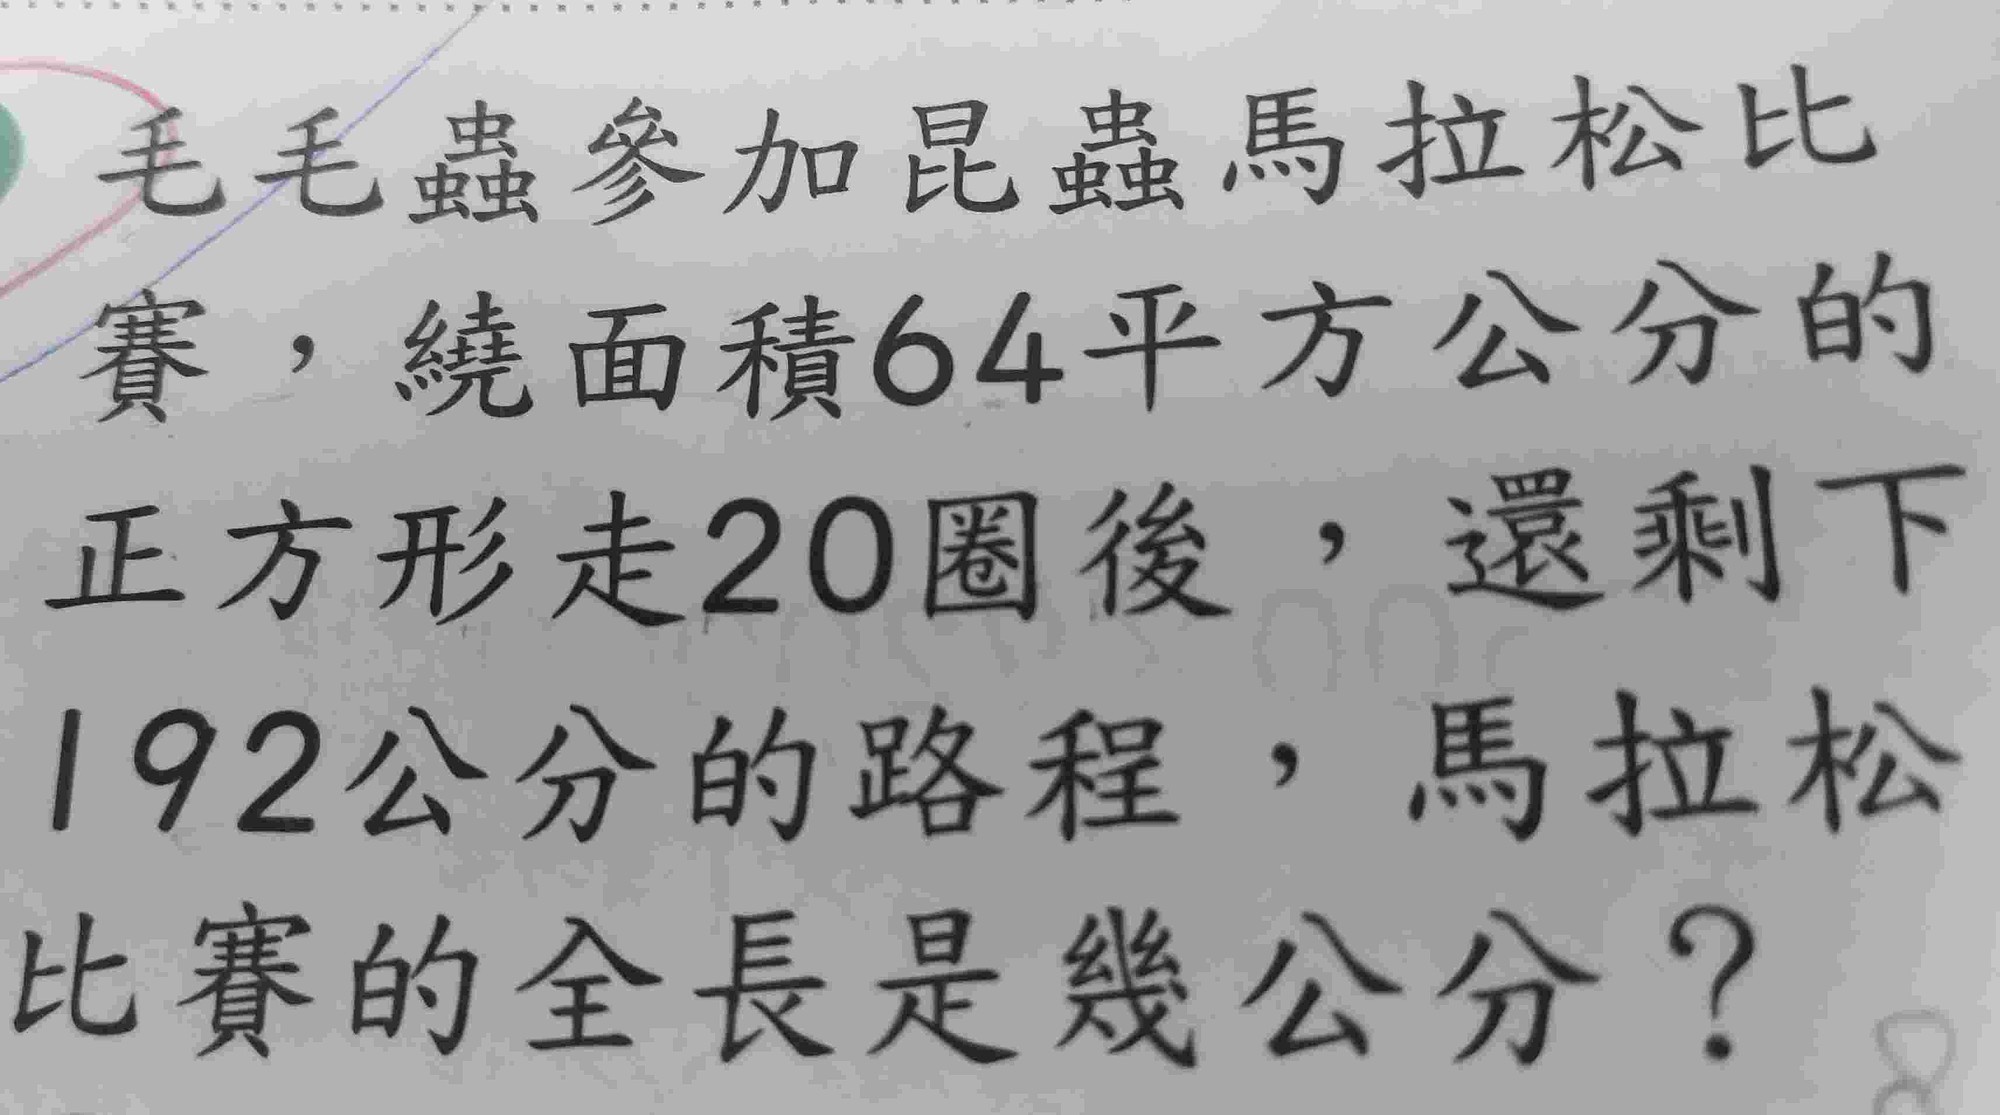 毛毛蟲參加昆蟲馬拉松比
賽，繞面積64平方公分的
正方形走20圈後，還剩下
192公分的路程，馬拉松
比賽的全長是幾公分？